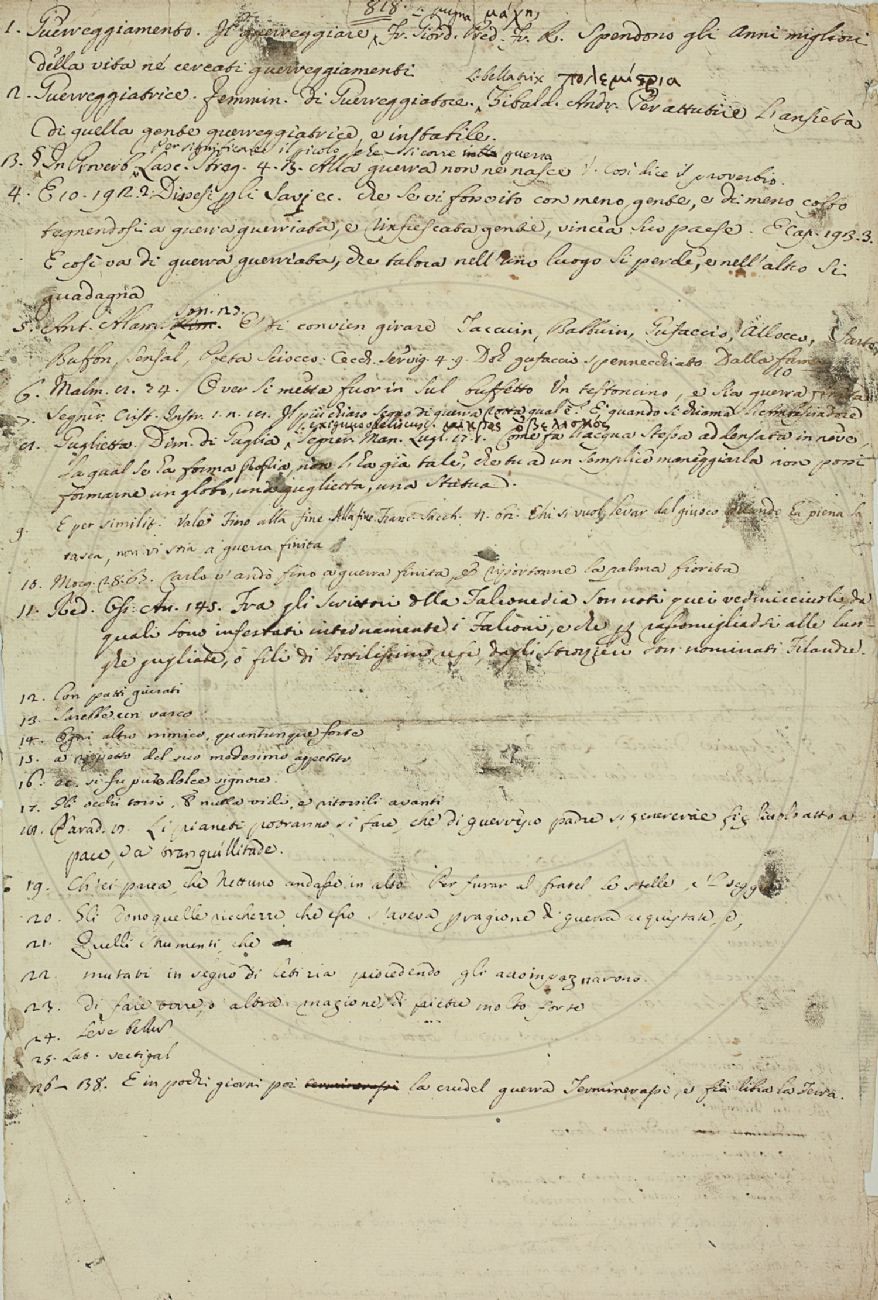 818. L. pugna μάχη,
1. Guerreggiamento. Il guerreggiare, Fr. Giord. Pred. Fr. R. Spendono gli Anni migliori
della vita ne' cercati guerreggiamenti
L. bellatrix πολεμήτρια
2. Guerreggiatrice. Femmin. di Guerreggiatore. Tibald. Andr. Per attutire L'ansietà
di quella gente guerreggiatrice, e instabile.
Per significare il picolo, che si corre in guerra
3. § In Proverb. Lasc. Streg. 4. 3. Alla guerra non ne nasce V. così dice il proverbio.
4. E 10. 191. 2. Dipesi gli Savj ec. che se vi fosse ito con meno gente, e di meno costo
tegnendosi a guerra guerriata, e rinfrescata gente, vincea suo paese. E Cap. 193. 3.
E così va di guerra guerriata, che talora nell'uno luogo si perde, e nell'altro si
guadagna
son. 23
5. Ant. Alam. E' ti convien girare Jacucin, Balbuin, Gufaccio, Allocco,
Buffon, Sensal, Poeta Sciocco. Cecch. Servig. 4. 9. Del gufaccio spennecchiato Dalla fame
10
6. Malm. 11. 34. Over si metta fuor in sul buffetto Un testoncino, e sia guerra finita
7. Segner. Crist. Instr. 1. n. 14. Il più chiaro segno di guerra rotta qual è? E' quando si chiama
μικρὸς ὀβελίσκος
8. Guglietta. Dim. di Guglia, Segner. Man. Lugl. 17. 1. Come fa l'acqua stessa addensata in neve,
La qual se ha forma propria, non l'ha già tale, che tu ad un semplice maneggiarla non possi
formarne un globo, una guglietta, una Statua.
9. E per similit. Vale Fino alla fine. Alla fine Franc. Sacch. n. Chi si vuol levar dal giuoco quando ha piena la
tasca, non vi stia a guerra finita
10. Morg. 28. 67. Carlo v'andò fino a guerra finita, E riportonne la palma fiorita
11. Red. Oss. An. 145. Fra gli scrittori della Falconeria son noti quei vermicciuoli, da
quali sono infestati internamente i Falconi, e che per rassomigliarsi alle lun-
ghe gugliate, o fili di sottilissimo refe, dagli Strozzieri son nominati Filandre.
12. Con patti giurati
13. Sarebbe un varco
14. Ogni altro nimico, quantunque forte
15. a rispetto del suo medesimo appetito
16. ec. si fu puro dolce signore.
17. Gli occhi torsi, E nulla vidi, e ritorsili avanti
18. Parad. 8. Li pianeti potranno si fare, che di guerresco padre si genererae figliuolo atto a
pace, o a tranquillitade.
19. Chi ci parea, che Nettuno andasse in alto Per furar al fratel le stelle, e 'l seggio
20. Gli donò quelle ricchezze, che esso s'aveva, pragione di guerra acquistate, e,
21. Quelli strumenti, che
22. mutati in segno di letizia procedendo gli accompagnarono.
23. Di fare torre, o altra magione, di pietre molto forte
24. Leve bellum
25. Lat. vectigal
26 - 38. E in pochi giorni poi terminerassi la crudel guerra Terminerassi, e fia libra la Terra.